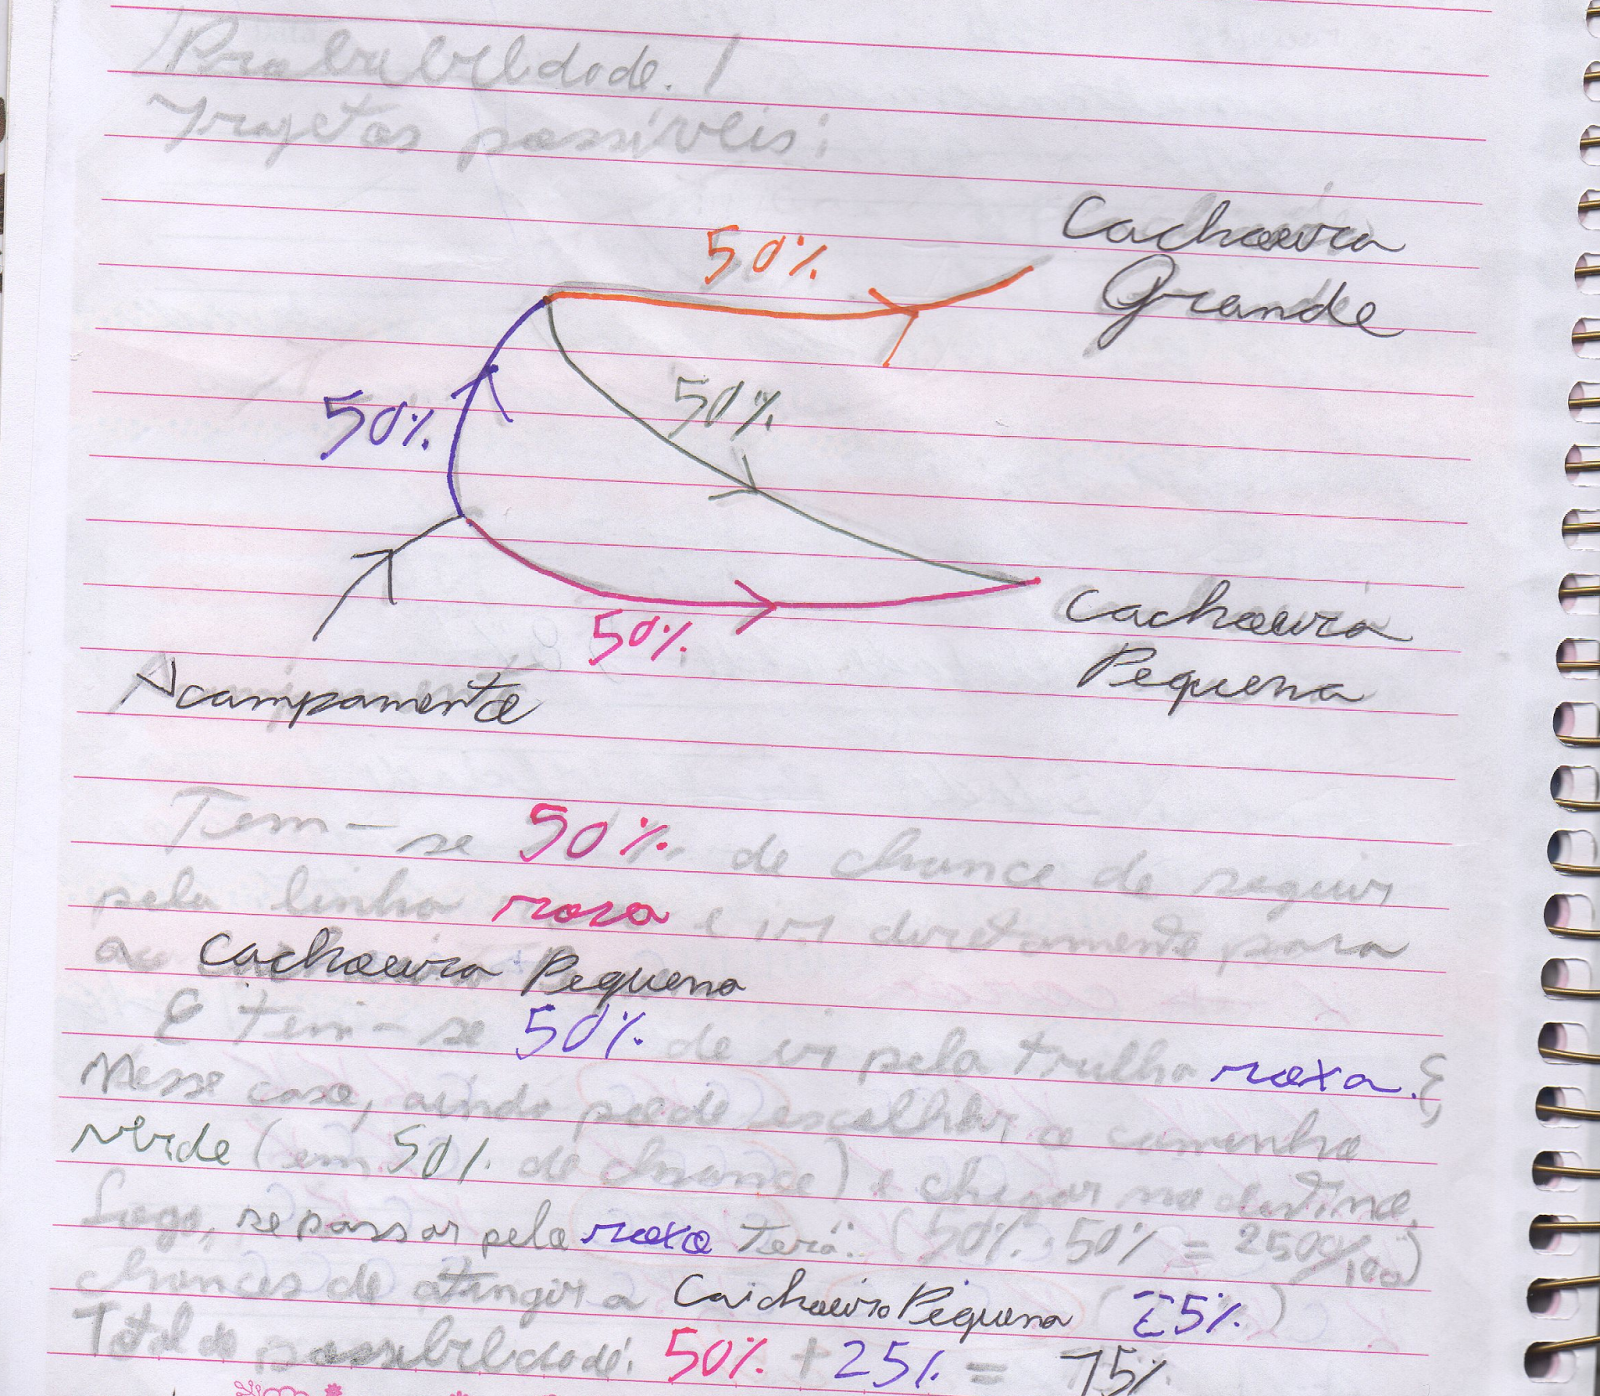 Probabilidade.
Trajetos possíveis:
50%
Cachoeira
Grande
50%
50%
50%
Cachoeira
Pequena
Acampamento
Tem-se 50% de chance de seguir
pela linha rosa e ir diretamente para
a Cachoeira Pequena
E tem-se 50% de ir pela trilha roxa. E,
Nesse caso, ainda pode escolher o caminho
verde (em 50% de chance) e chegar no destino.
Logo, se passar pela roxa terá: (50%.50% = 2500/100)
chances de atingir a Caichoeira Pequena (25%)
Total de possibilidade: 50% + 25% = 75%